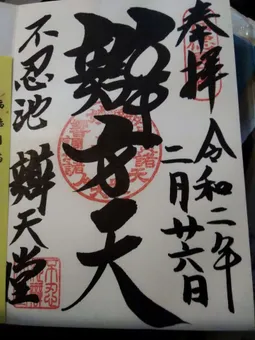 奉拝
令和二年
二月廿六日
辨才天
不忍池
辨天堂